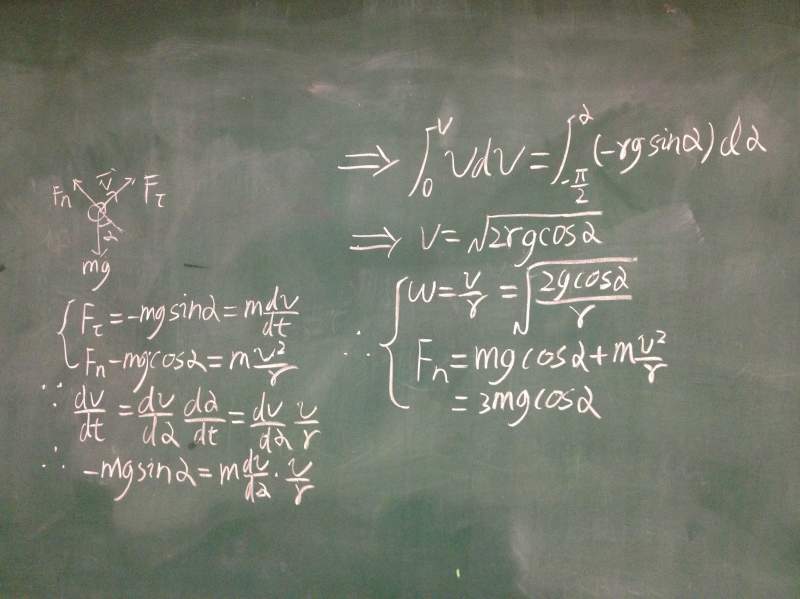 Fn v⃗ Fτ
α
mg
{ Fτ = -mg sinα = m dv/dt
Fn - mg cosα = m v²/r
∵ dv/dt = dv/dα dα/dt = dv/dα v/r
∴ -mg sinα = m dv/dα · v/r
⇒ ∫₀^v v dv = ∫_{-π/2}^α (-rg sinα) dα
⇒ v = √(2rg cosα)
∴ { ω = v/r = √(2g cosα / r)
Fn = mg cosα + m v²/r
= 3mg cosα